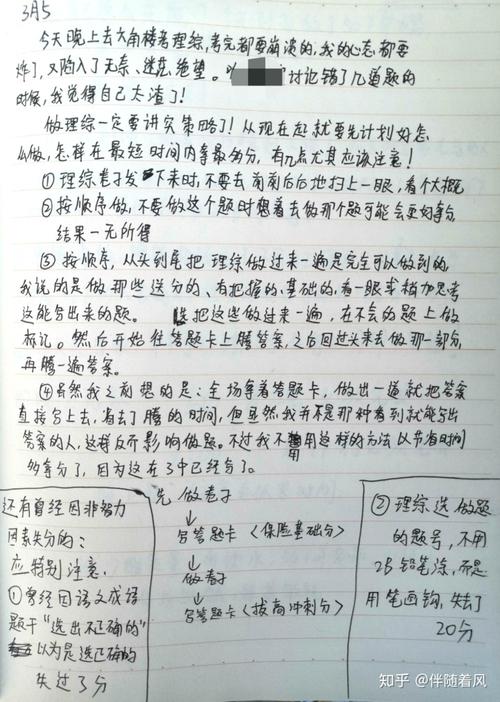 3月5
今天晚上去大角楼考理综,考完都要崩溃的,我的心态都要
炸了,又陷入了无奈、迷茫、绝望。以 讨论错了几道题的
时候,我觉得自己太渣了!
做理综一定要讲究策略了!从现在起就要先计划好怎
么做,怎样在最短时间内拿最多分,有几点尤其应该注意!
①理综卷子发下来时,不要去前前后后地扫上一眼,看个大概
②按顺序做,不要做这个题时想着去做那个题可能会更好拿分
结果一无所得
③按顺序,从头到尾把理综做过来一遍是完全可以做到的,
我说的是做那些送分的、有把握的、基础的,看一眼或稍加思考
就能写出来的题。 把这些做过来一遍,在不会的题上做
标记。然后开始往答题卡上腾答案,之后回过头来去做那一部分,
再腾一遍答案。
④虽然我之前想的是:全场拿着答题卡,做出一道就把答案
直接写上去,省去了腾的时间,但显然我并不是那种看到就能写出
答案的人,这样反而影响做题。不过我不用这样的方法以节省时间
多拿分了,因为这在3中已经写了。
还有曾经因非努力
因素失分的:
应特别注意.
①曾经因语文成语
题干“选出不正确的”
以为是选正确的
失过3分
先 做卷子
↓
写答题卡〈保险基础分〉
↓
做卷子
↓
写答题卡〈拔高冲刺分〉
②理综选做题
的题号,不用
2B铅笔涂,而是
用笔画钩,失去了
20分
知乎 @伴随着风